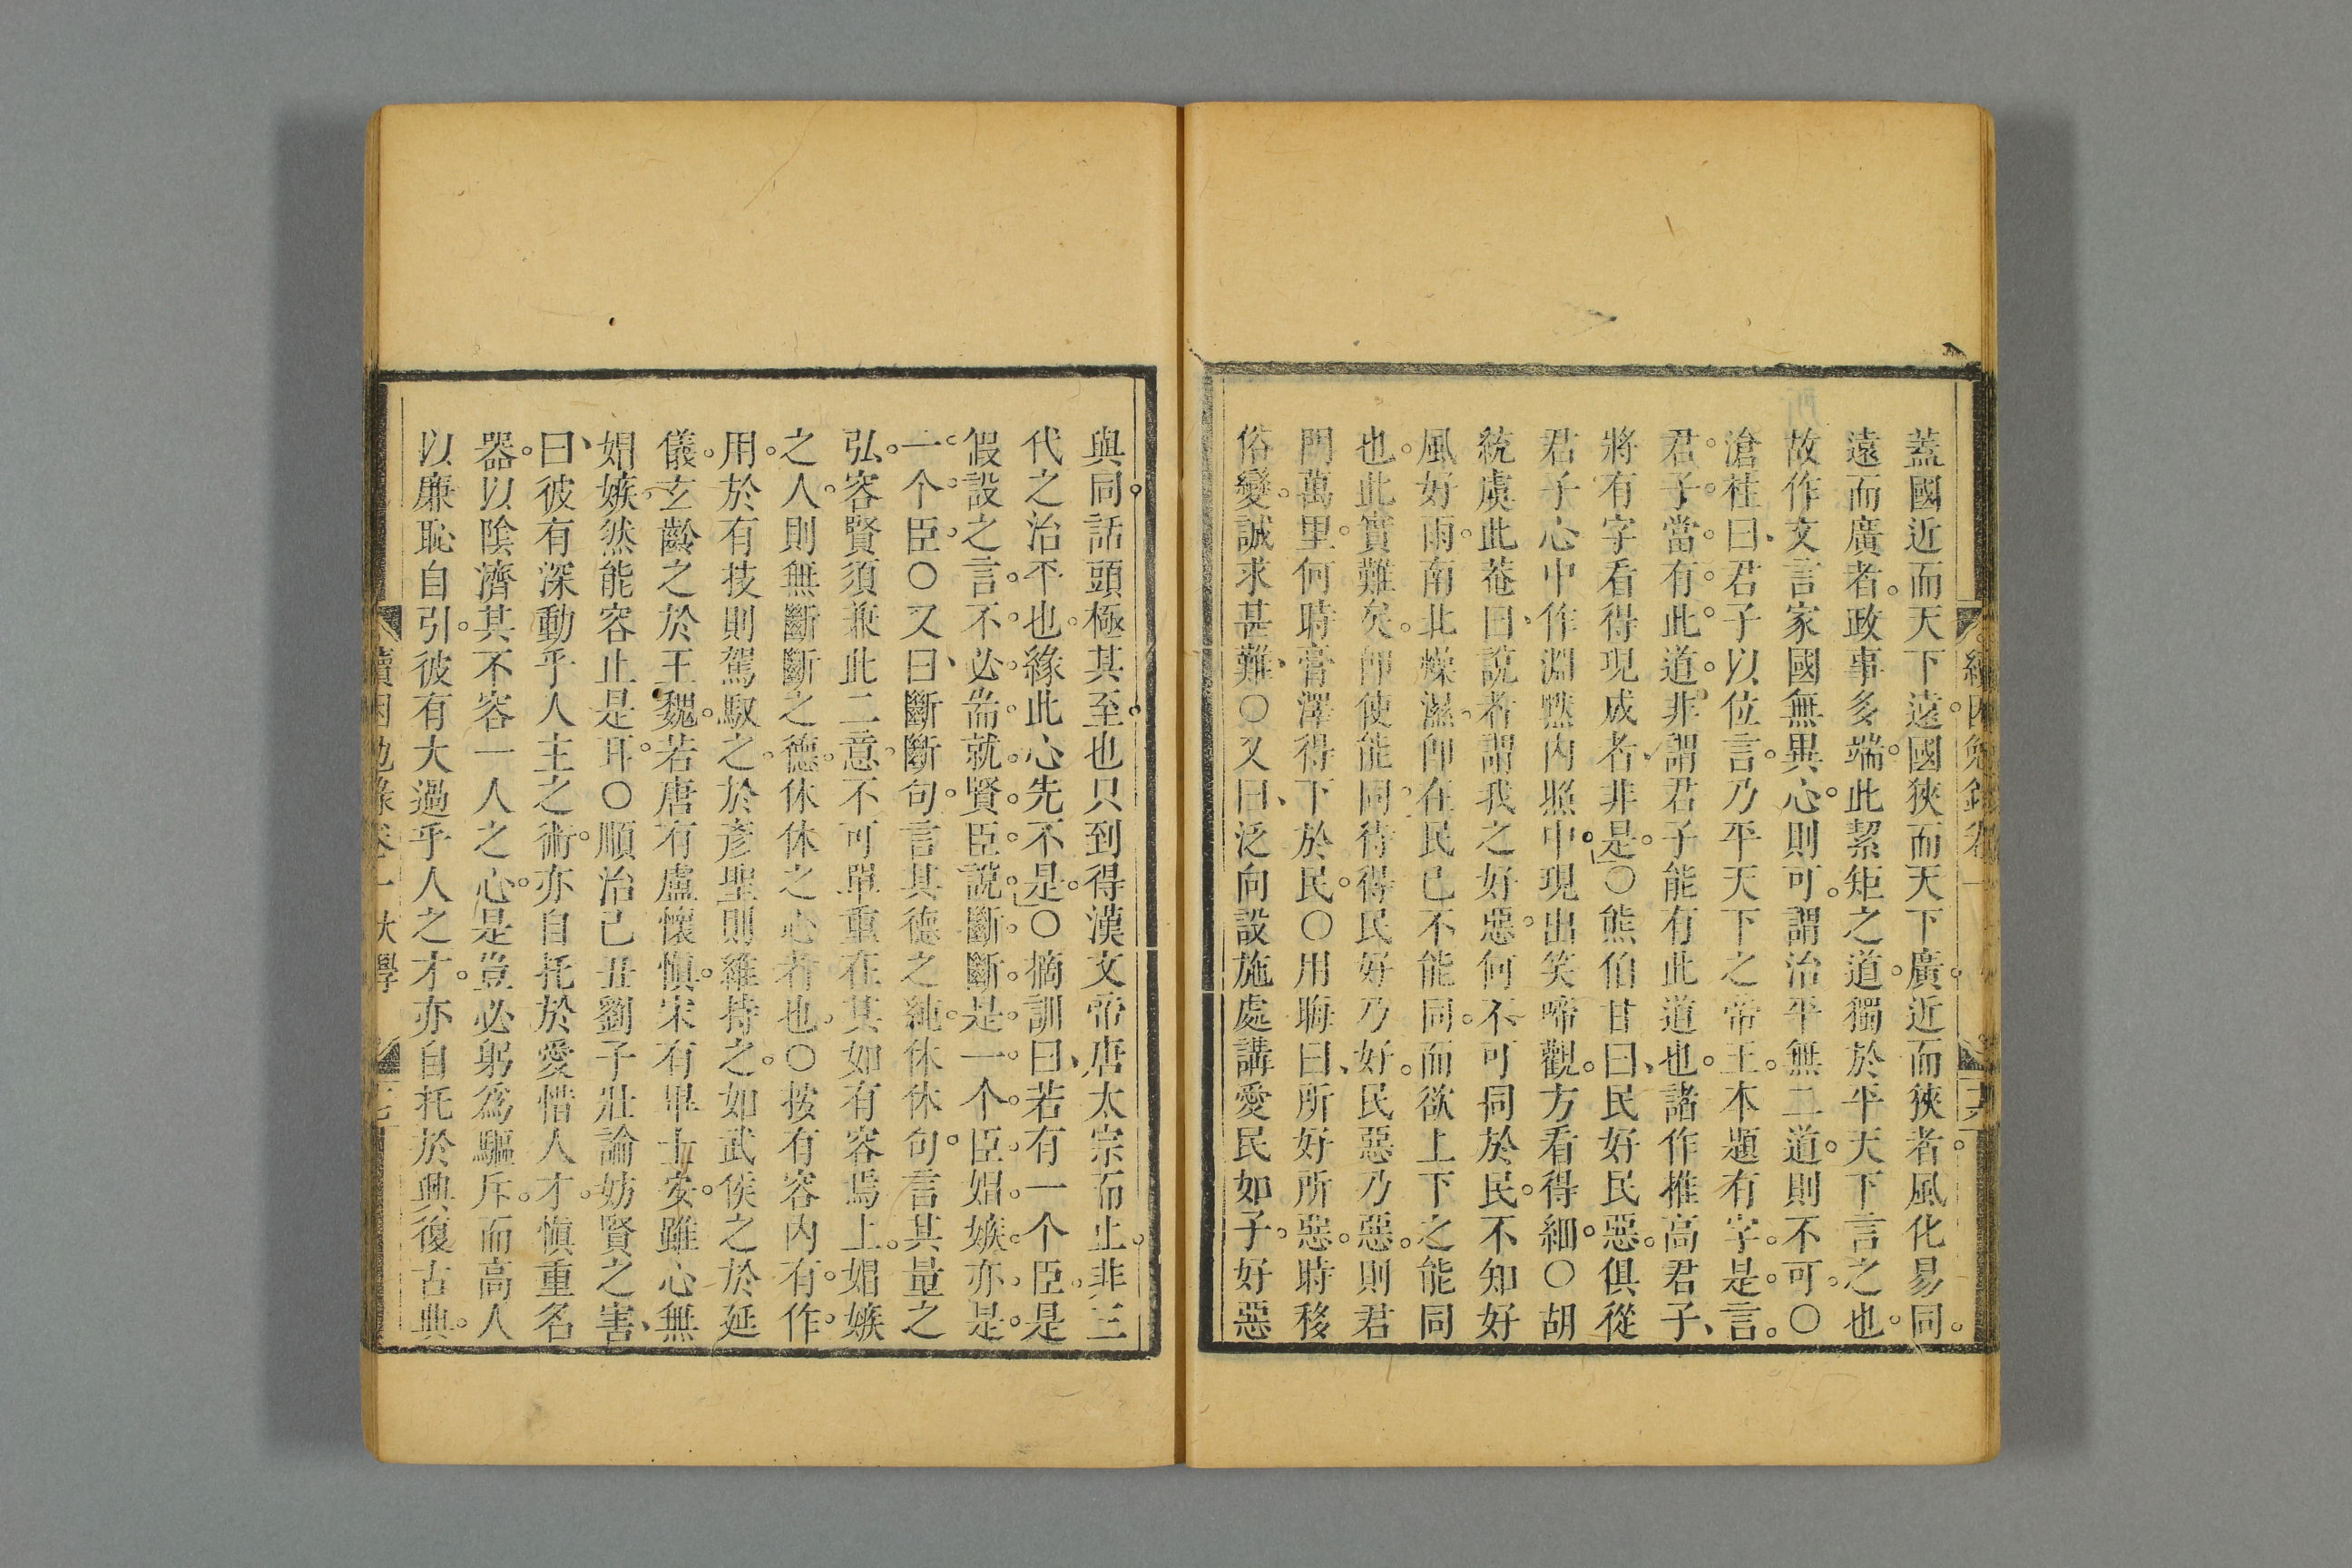 蓋國近而天下遠。國狹而天下廣。近而狹者。風化易同。
遠而廣者。政事多端。此絜矩之道。獨於平天下言之也。
故作文言家國無異心。則可。謂治平無二道。則不可。○
滄柱曰、君子以位言。乃平天下之帝王。本題有字。是言。
君。子。當。有。此。道。非謂君子能有此道也。諸作推高君子、
將有字看得現成者、非是。○熊伯甘曰、民好民惡。俱從
君子心中作淵黙內照中。現出笑啼觀。方看得細。○胡
統虞此菴曰、說者謂我之好惡。何不可同於民。不知好
風好雨。南北燥濕。卽在民已不能同。而欲上下之能同
也。此實難矣。卽使能同。待得民好乃好。民惡乃惡。則君
門萬里。何時膏澤得下於民。○用晦曰、所好所惡。時移
俗變。誠求甚難、○又曰、泛向設施處講愛民如子。好惡
與同。話頭極其至。也只到得漢文帝唐太宗而止。非三
代之治平也。緣此心先不是。○摘訓曰、若有一个臣。是
假設之言。不。必。耑。就。賢。臣。說。斷。斷。是。一。个。臣。娼。嫉。亦。是。
一。个。臣。○又曰、斷斷句。言其德之純。休休句。言其量之
弘。容賢須兼此二意。不可單重在其如有容焉上。娼嫉
之人。則無斷斷之德。休休之心者也。○按有容內有。作。
用。於有技則駕馭之。於彥聖則維持之。如武侯之於延
儀。玄齡之於王魏。若唐有盧懷愼。宋有畢士安。雖心無
娼嫉。然能容止是耳。○順治己丑劉子壯論妨賢之害、
曰、彼有深動乎人主之術。亦自托於愛惜人才。愼重名
器。以陰濟其不容一人之心。是豈必躬爲驅斥。而高人
以廉恥自引。彼有大過乎人之才。亦自托於興復古典。